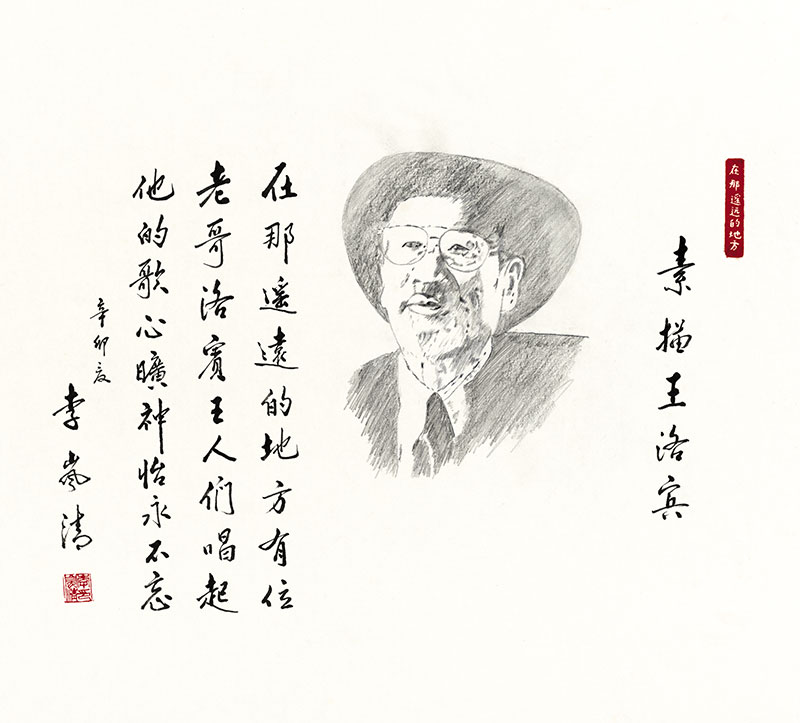 在那遥远的地方
素描王洛宾
在那遥遠的地方有位
老哥洛賓王人们唱起
他的歌心曠神怡永不忘
辛卯夏
李嵐清